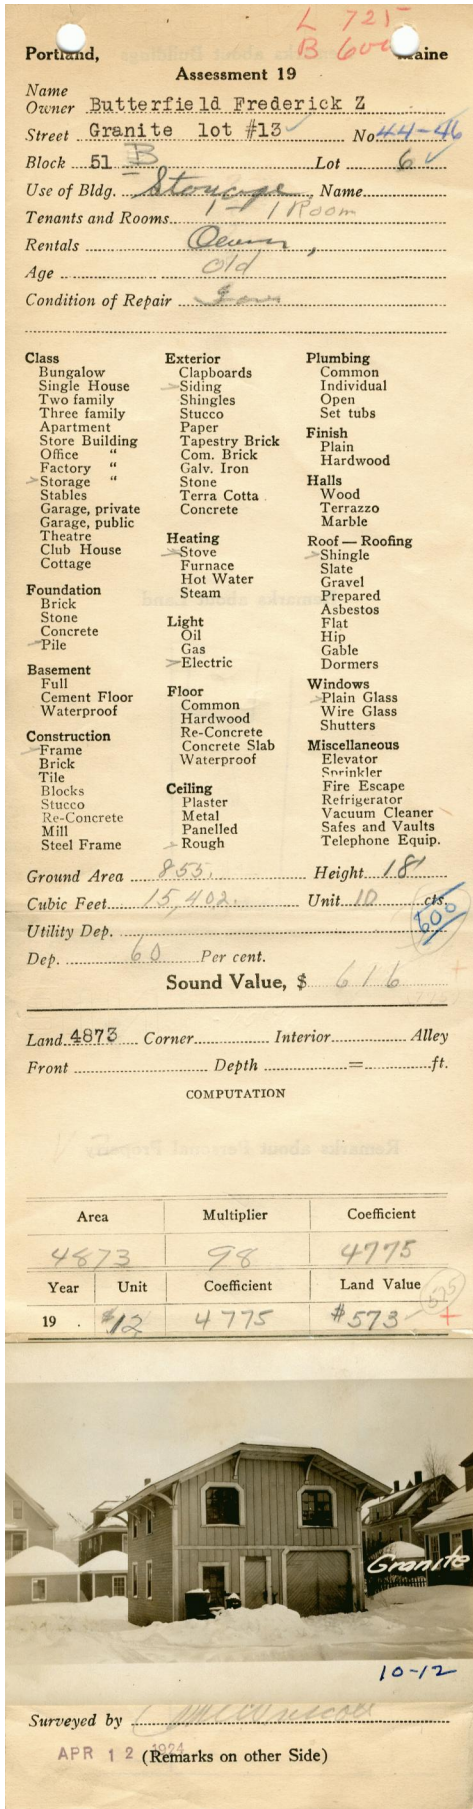 L 725
B 600
Portland, Maine
Assessment 19
Name
Owner Butterfield Frederick Z
Street Granite lot #13 No 44-46
Block 51 B Lot 6
Use of Bldg. Storage Name
Tenants and Rooms 1 - 1 Room
Rentals Owner,
Age Old
Condition of Repair
Class
Bungalow
Single House
Two family
Three family
Apartment
Store Building
Office "
Factory "
Storage "
Stables
Garage, private
Garage, public
Theatre
Club House
Cottage
Foundation
Brick
Stone
Concrete
Pile
Basement
Full
Cement Floor
Waterproof
Construction
Frame
Brick
Tile
Blocks
Stucco
Re-Concrete
Mill
Steel Frame
Exterior
Clapboards
Siding
Shingles
Stucco
Paper
Tapestry Brick
Com. Brick
Galv. Iron
Stone
Terra Cotta
Concrete
Heating
Stove
Furnace
Hot Water
Steam
Light
Oil
Gas
Electric
Floor
Common
Hardwood
Re-Concrete
Concrete Slab
Waterproof
Ceiling
Plaster
Metal
Panelled
Rough
Plumbing
Common
Individual
Open
Set tubs
Finish
Plain
Hardwood
Halls
Wood
Terrazzo
Marble
Roof — Roofing
Shingle
Slate
Gravel
Prepared
Asbestos
Flat
Hip
Gable
Dormers
Windows
Plain Glass
Wire Glass
Shutters
Miscellaneous
Elevator
Sprinkler
Fire Escape
Refrigerator
Vacuum Cleaner
Safes and Vaults
Telephone Equip.
Ground Area 855. Height 18'
Cubic Feet 15,402. Unit 10 cts.
600
Utility Dep.
Dep. 60 Per cent.
Sound Value, $ 616
Land 4873 Corner Interior Alley
Front Depth = ft.
COMPUTATION
Remarks about Personal Property
Area Multiplier Coefficient
4873 98 4775
Year Unit Coefficient Land Value
575
19 . $12 4775 $573
Granite
10-12
Surveyed by
APR 12 1924 (Remarks on other Side)